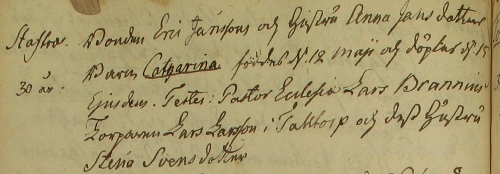 Stafhre. Bonden Eric Jansons och Hustru Anna Jans dotter
Barn Catharina föddes d. 12 maji och döptes d. 15
30 år. Ejusdem. Testes: Pastor Ecclesiæ Lars Brannius
Torparen Lars Larsson i och dess Hustru
Stina Svens dotter